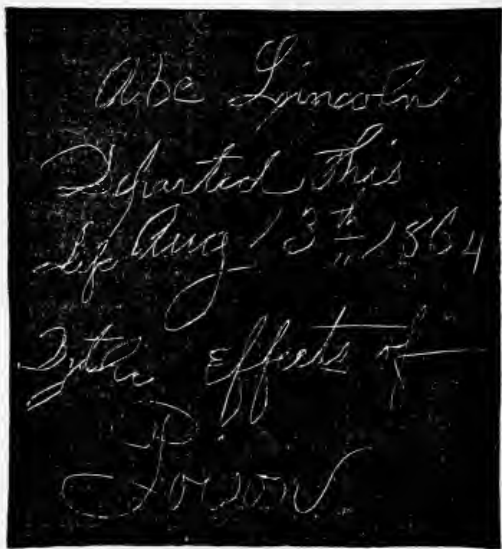 Abe Lincoln
Departed This
Life Aug 13th 1864
By the Effects of
Poison.